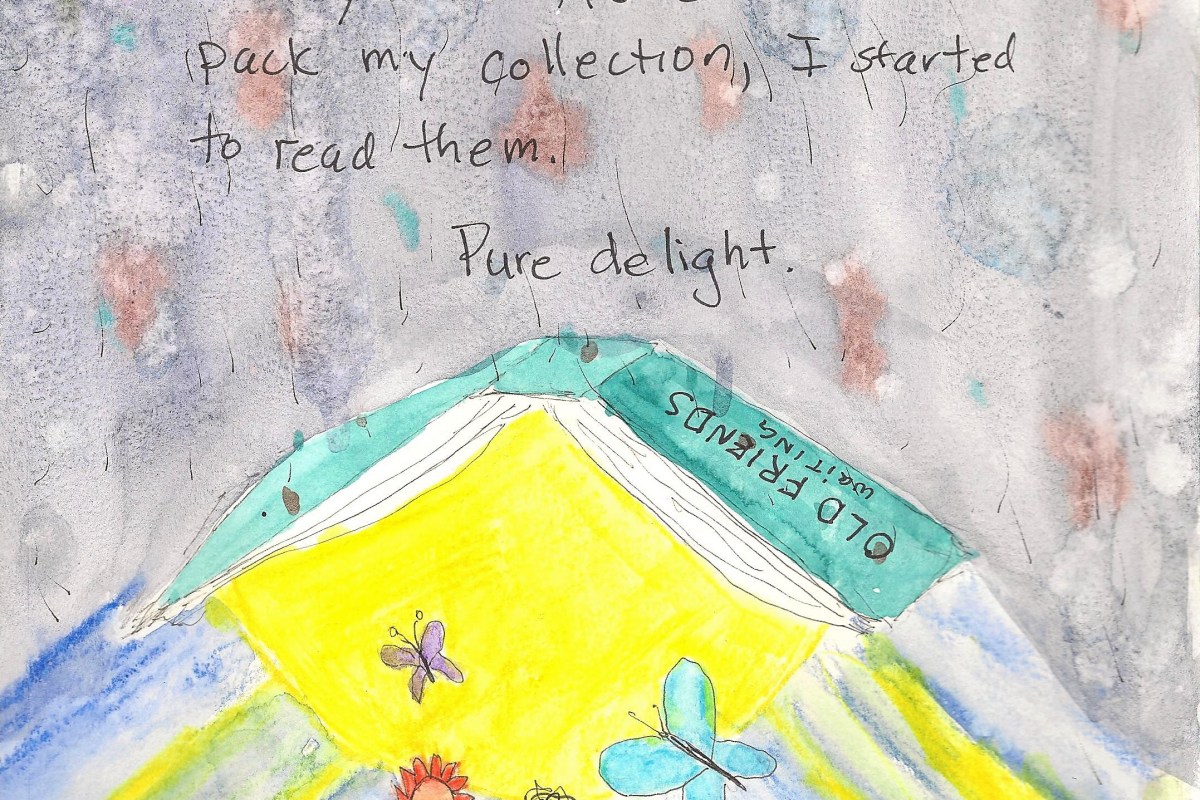 pack my collection, I started
to read them.
Pure delight.
OLD FRIENDS
WAITING